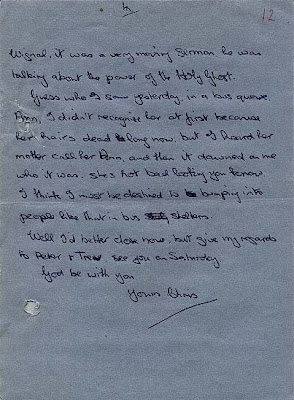 4
12
Wignal, it was a very moving Sermon he was
talking about the power of the Holy Ghost.
Guess who I saw yesterday, in a bus queue.
Ann, I didn't recognise her at first because
her hairs dead long now, but I heard her
mother call her Ann, and then it dawned on me
who it was. she's not bad looking you know
I think I must be destined to bumping into
people like that in bus stations.
Well I'd better close now, but give my regards
to Peter + Trev see you on Saturday
God be with you
Yours Chris